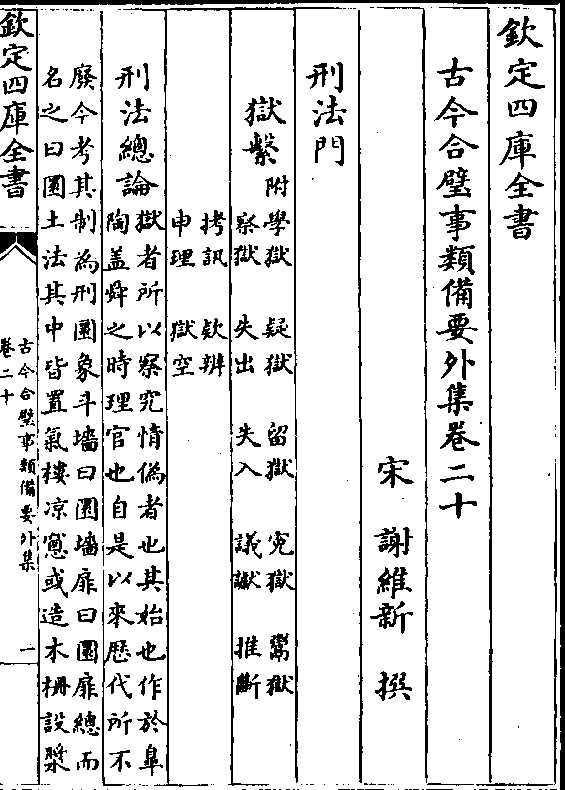 欽定四庫全書
古今合璧事類備要外集卷二十
宋 謝維新 撰
刑法門
獄繫
附學獄 疑獄 留獄 寃獄 鬻獄
察獄 失出 失入 議讞 推斷
拷訊 欵辨
申理 獄空
刑法總論
獄者所以察究情偽者也其始也作於臯
陶盖舜之時理官也自是以來歴代所不
廢今考其制為刑圜象斗墻曰圜墻扉曰圜扉總而
名之曰圜土法其中皆置氣樓凉窻或造木栅設漿
欽定四庫全書
古今合璧事類備要外集
卷二十
一